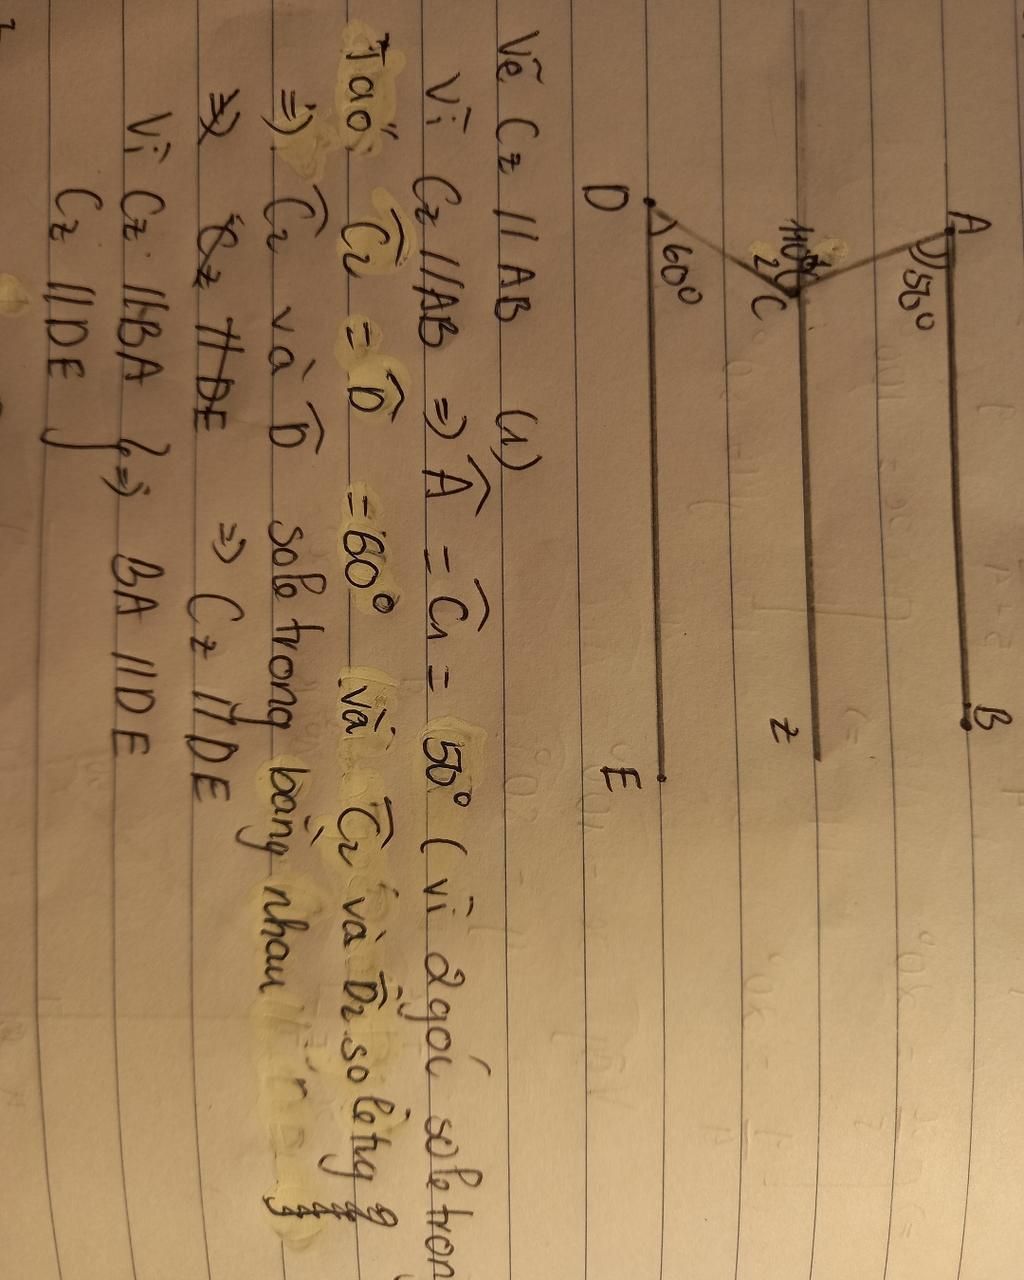 A
B
50°
110°
2
C
z
60°
D
E
Vẽ Cz // AB (1)
Vì Cz // AB => Â = Ĉ₁ = 50° ( vì 2 góc sole tron
Ta có Ĉ₂ = D̂ = 60° và Ĉ₂ và D̂₂ sole trg
=> Ĉ₂ và D̂ sole trong bằng nhau
=> Cz // DE => Cz // DE
Vì Cz // BA } => BA // DE
Cz // DE